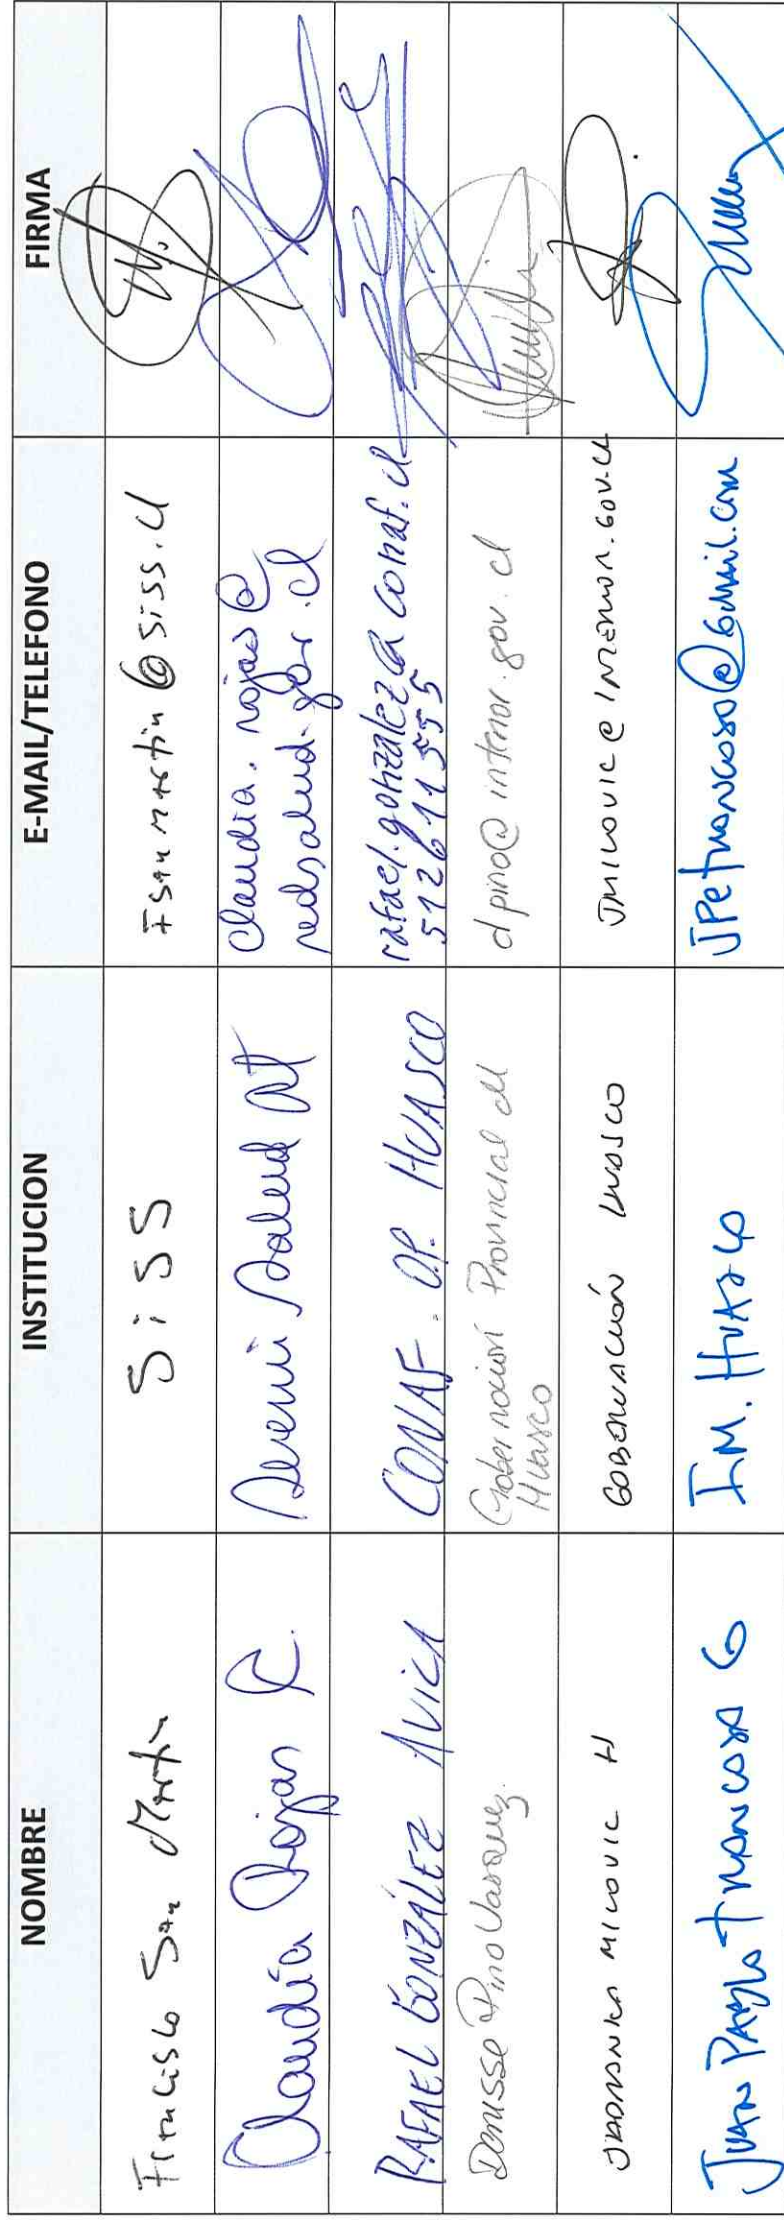 NOMBRE INSTITUCION E-MAIL/TELEFONO FIRMA
Francisco San Martín SiSS Fsanmartin@siss.cl
Claudia Rojas C. Seremi Salud At Claudia.rojas@
redsalud.gov.cl
RAFAEL GONZÁLEZ AVILA CONAF. OP. HUASCO rafael.gonzalez@conaf.cl
512611555
Denisse Pino Vasquez. Gobernación Provincial del
Huasco dpino@interior.gov.cl
MILOVIC H GOBERNACIÓN HUASCO JMILOVIC@INTERIOR.GOV.CL
JUAN PABLO TRONCOSO G I.M. HUASCO JPetroncoso@Gmail.com